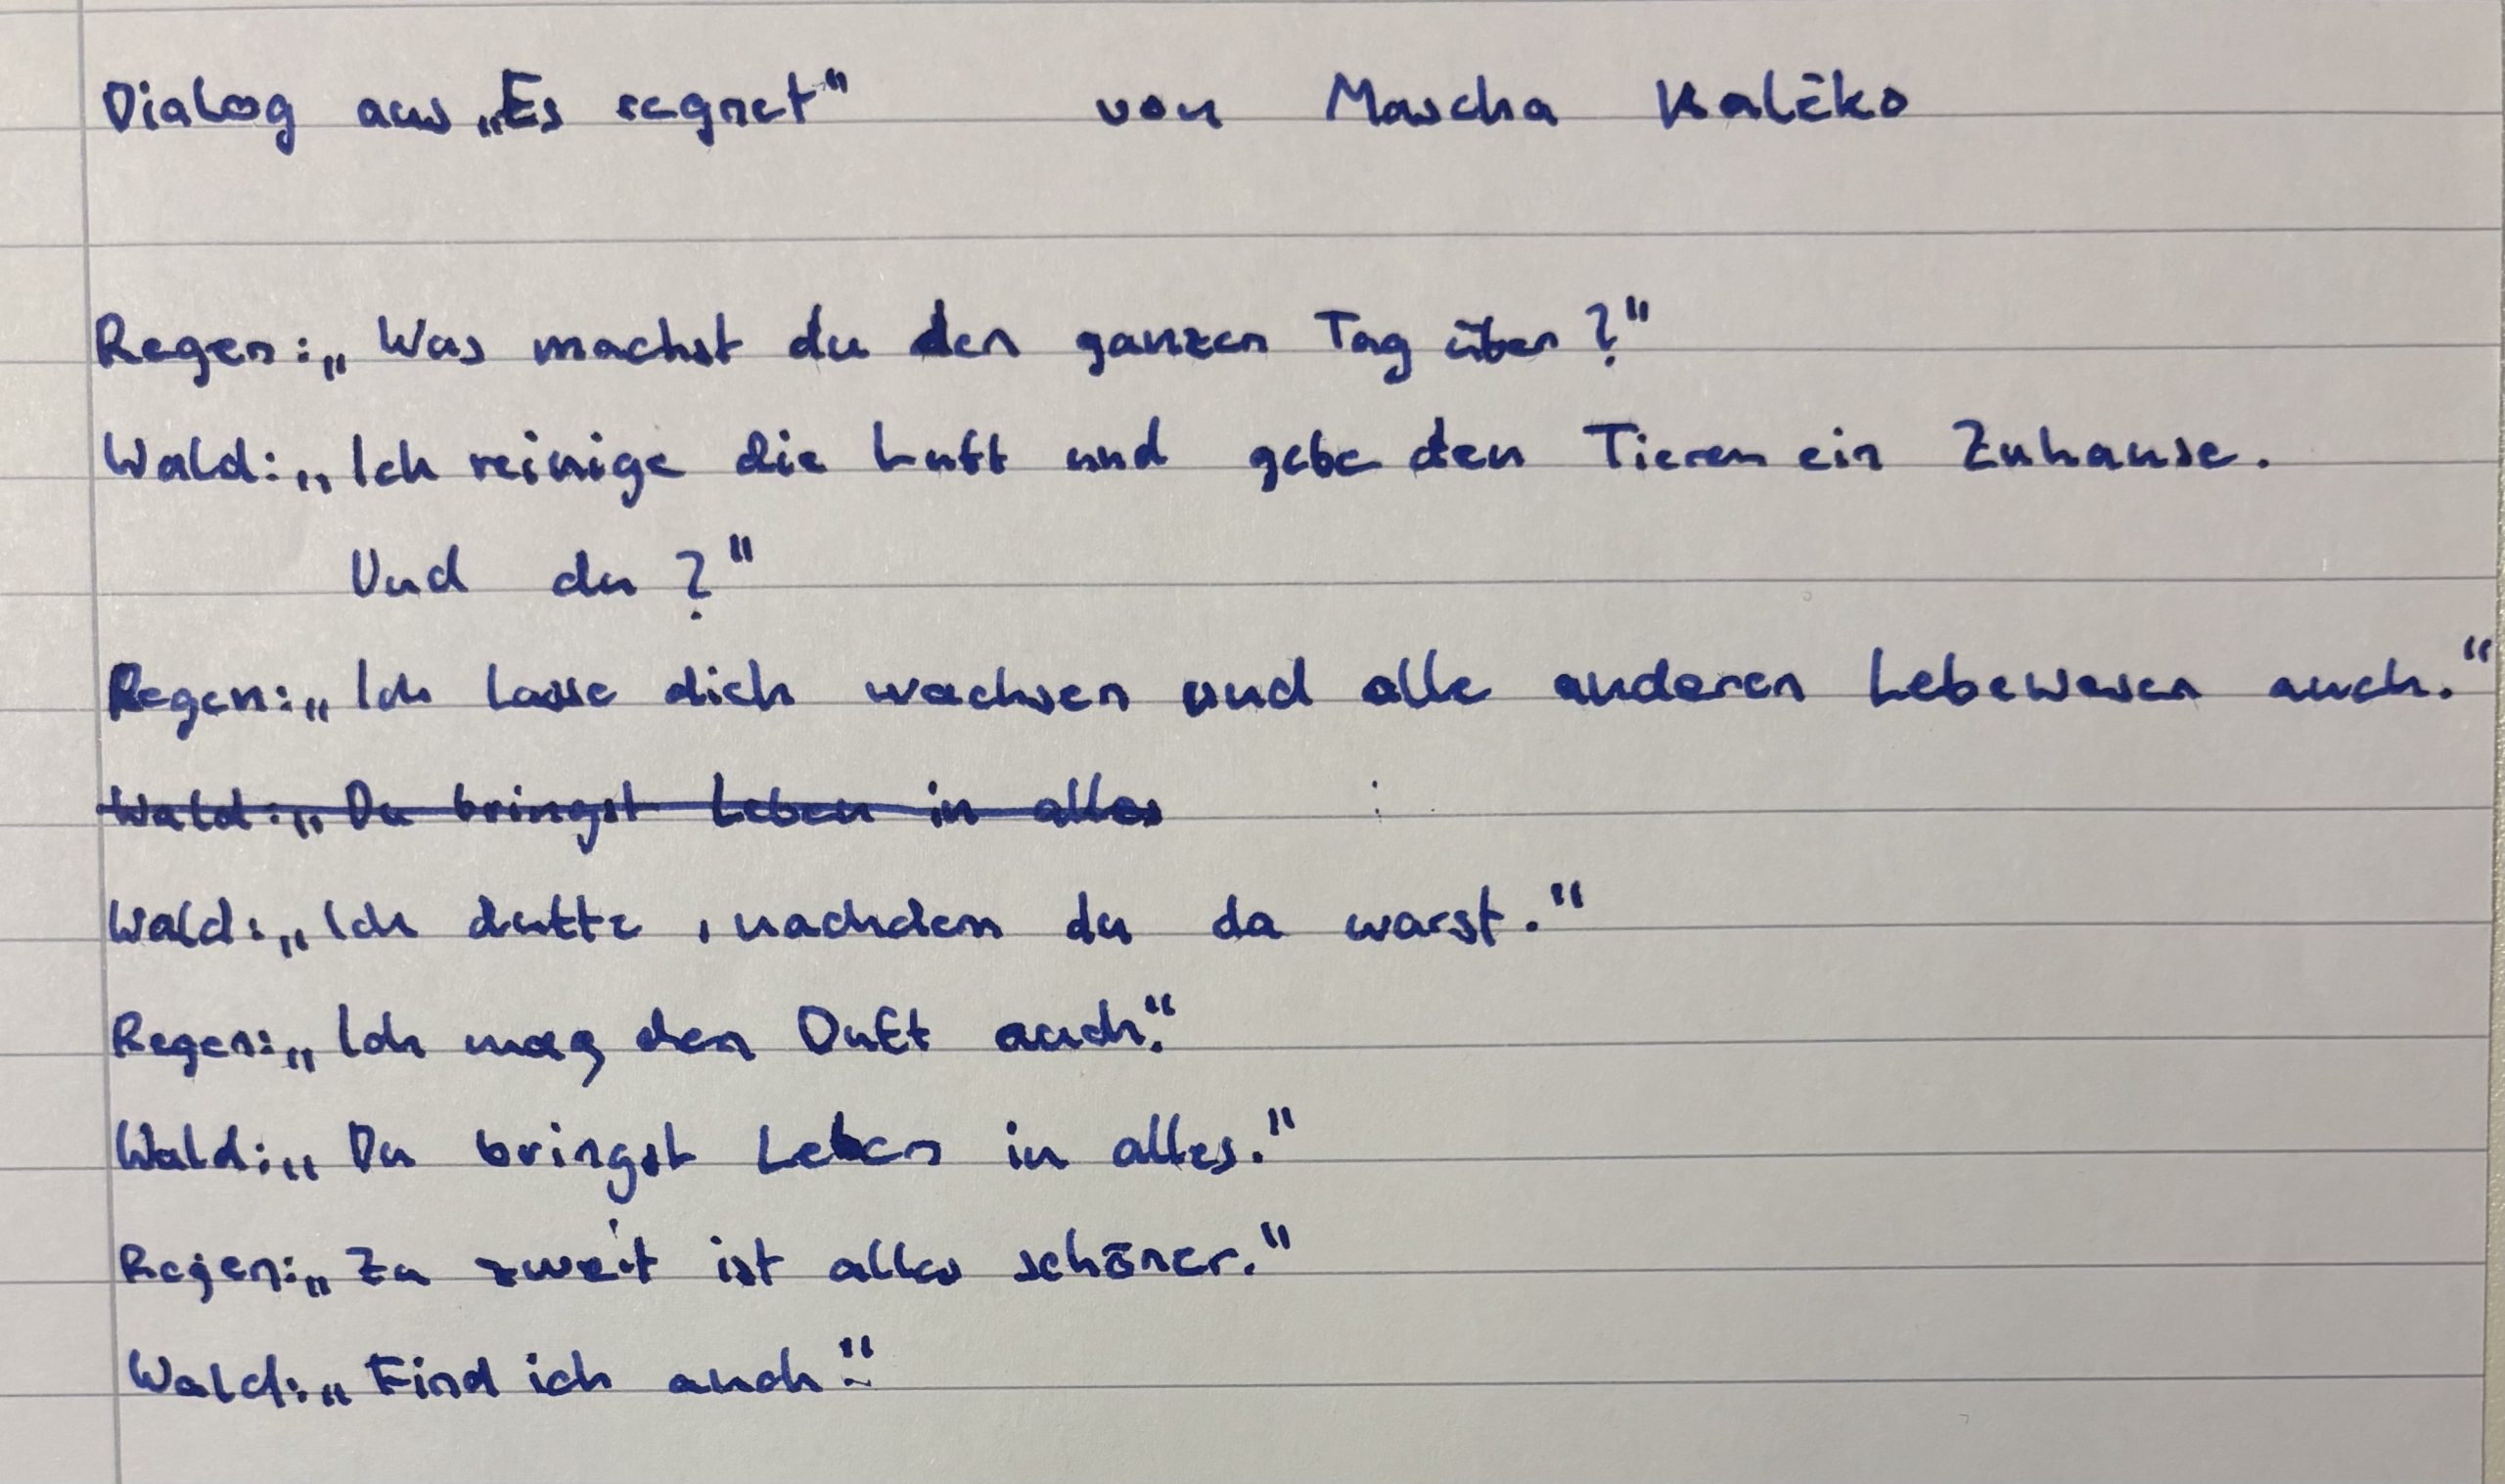 Dialog aus „Es regnet" von Mascha Kaléko
Regen: „Was machst du den ganzen Tag über?"
Wald: „Ich reinige die Luft und gebe den Tieren ein Zuhause.
Und du?"
Regen: „Ich lasse dich wachsen und alle anderen Lebewesen auch."
Wald: „Du bringst Leben in alles
Wald: „Ich dufte, nachdem du da warst."
Regen: „Ich mag den Duft auch."
Wald: „Du bringst Leben in alles."
Regen: „Zu zweit ist alles schöner."
Wald: „Find ich auch."